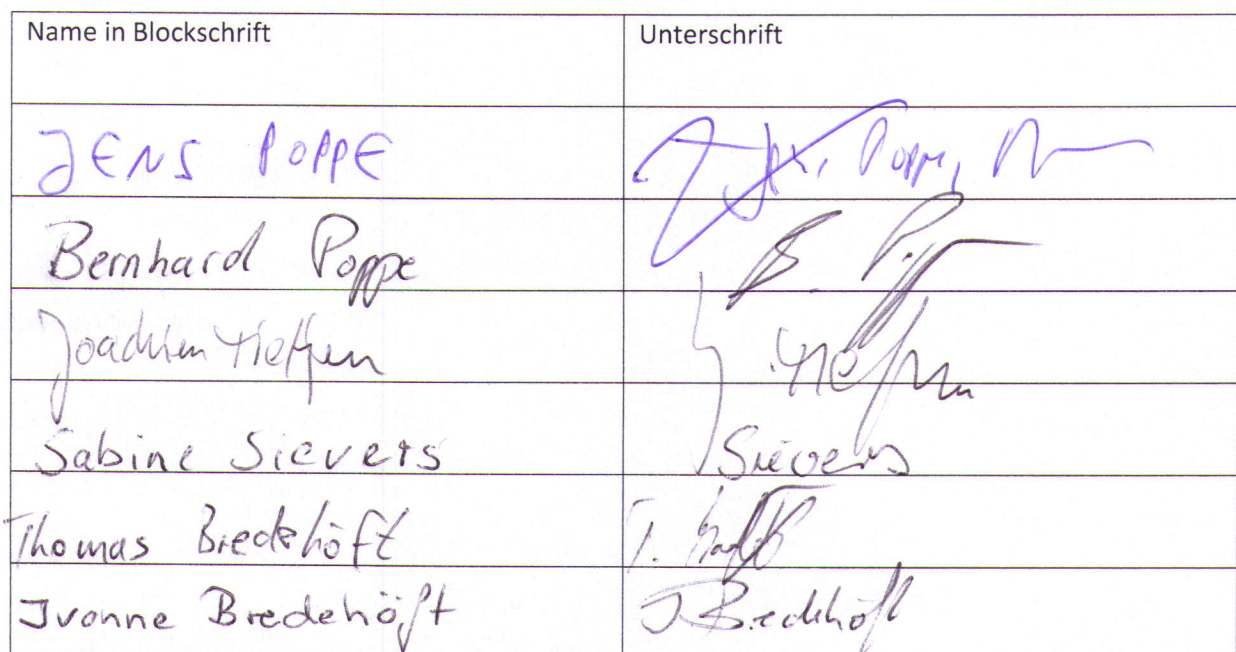 Name in Blockschrift Unterschrift
JENS POPPE Poppe,
Bernhard Poppe B. P
Joachim
Sabine Sievers Sievers
Thomas Bredehöft T.
Ivonne Bredehöft I Bredehöft